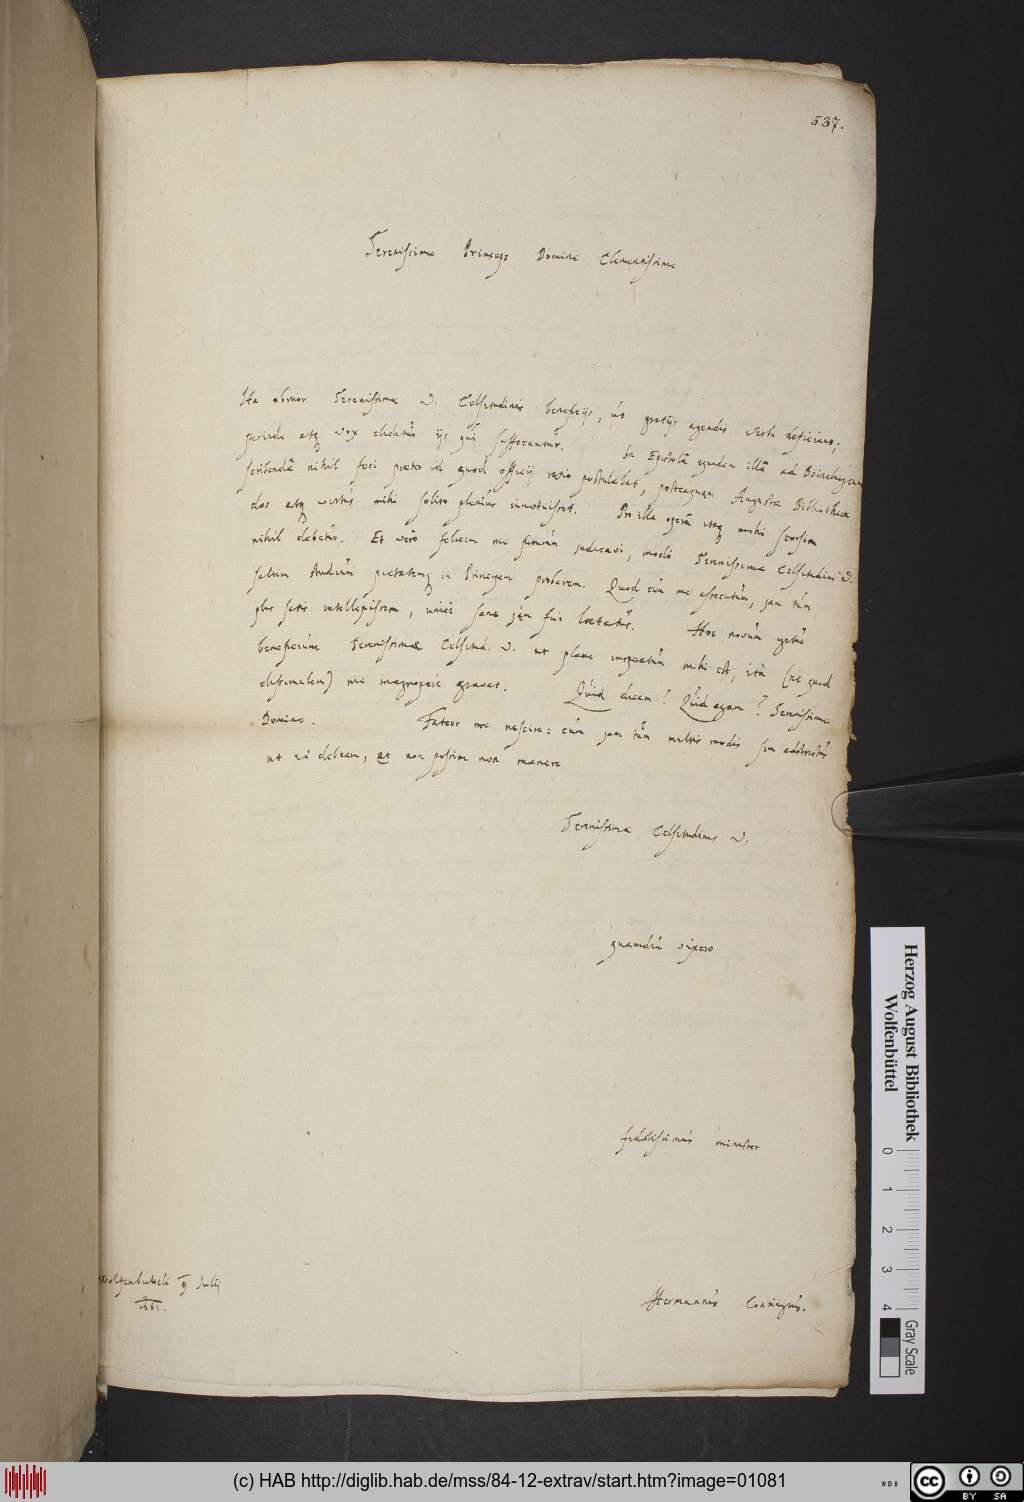 537.
Serenissime Princeps Domine Clementissime
Ita obruor Serenissimae V. Celsitudinis beneficijs, ut gratijs agendis verba deficiant;
perinde atq vox eludetur ijs qui suffocantur. In Epistolâ quadem illâ ad Boineburgium
scribendâ nihil feci praeter id quod officij ratio postulabat, postquam Augusta Bibliotheca
dos atq virtus mihi solito plenius innotuisset. Pro illa opera itaq mihi seorsim
nihil debetur. Et verò felicem me futurum judicavi, modò Serenissimae Celsitudini V.
saltim studium pietatemq in Principem probarem. Quod cum me assecutum, jam tum
plus satis intellexissem, unicè sane jam fui laetatus. Hoc novum igitur
beneficium Serenissimae Celsitud. V. ut plane inopinatum mihi est, ità (ne quid
dissimulem) me magnopere gravat. Quid dicam? Quid agam? Serenissime
Domine. Fateor me nescire: cùm jam tum multis modis sim adstrictus
ut nec debeam, et non possim non manere
Serenissimae Celsitudinis V.
quamdiu vixero
fidelissimus minister
Wolfenbutteli 9 Julij
1661.
Hermannus Conringius.
Herzog August Bibliothek
Wolfenbüttel
0 1 2 3 4
Gray Scale
(c) HAB http://diglib.hab.de/mss/84-12-extrav/start.htm?image=01081
WDB
cc BY SA